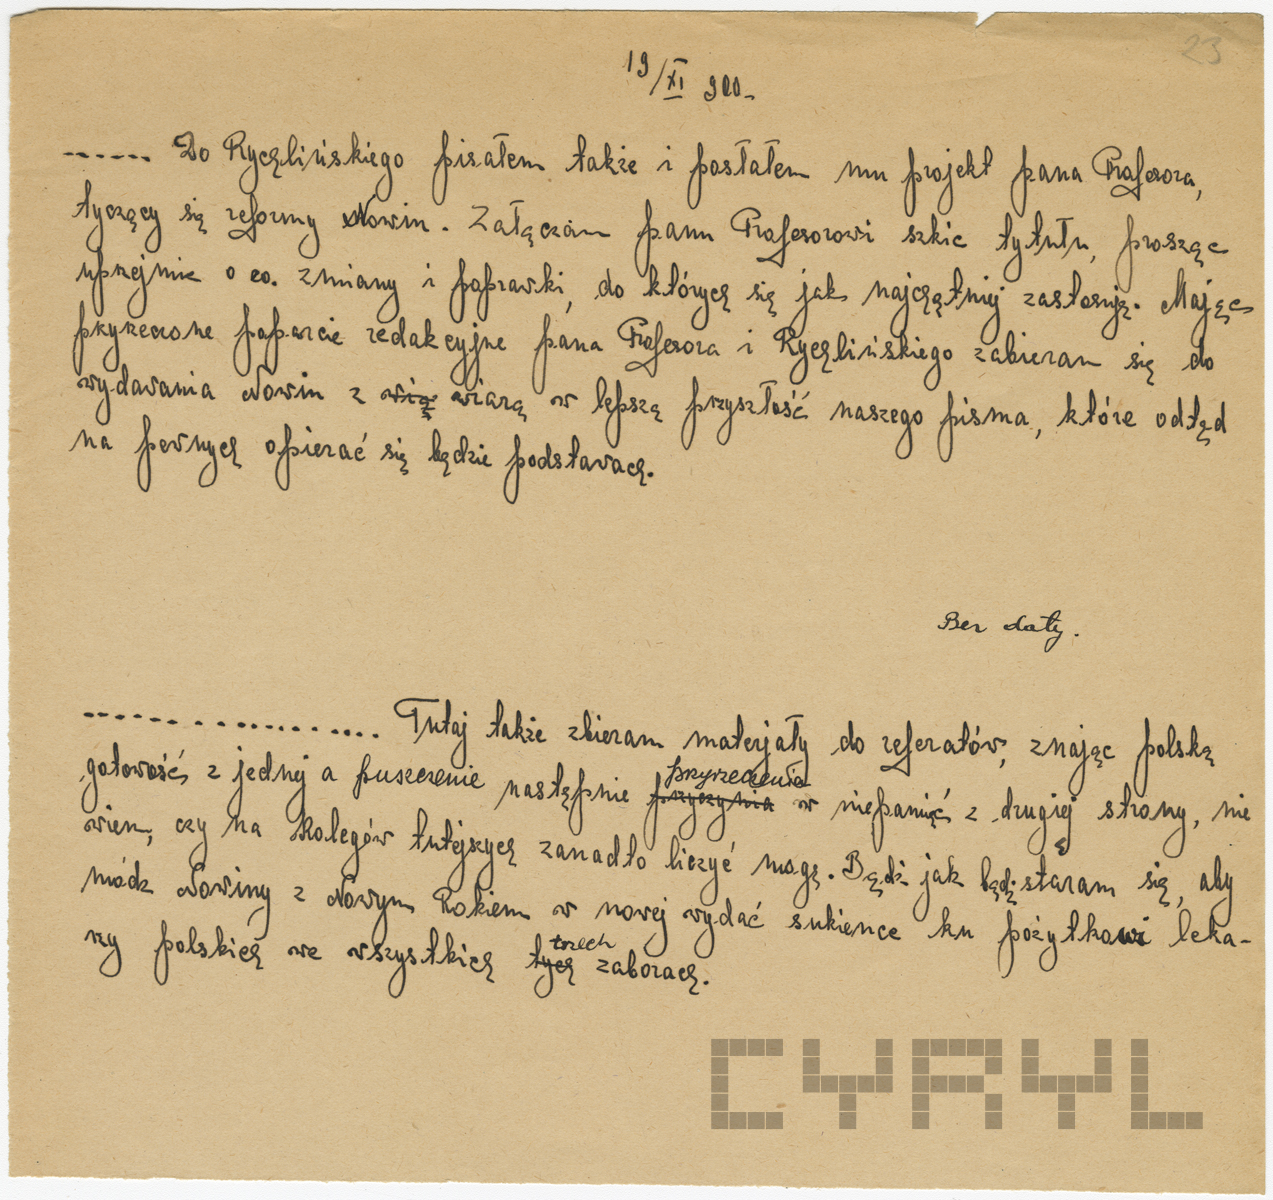 23
19/XI 900.
....... Do Rychlińskiego pisałem także i posłałem mu projekt pana Profesora,
tyczący się reformy Nowin. Załączam panu Profesorowi szkic tytułu, prosząc
uprzejmie o ew. zmiany i poprawki, do których się jak najchętniej zastosuję. Mając
przyrzeczone poparcie redakcyjne pana Profesora i Rychlińskiego zabieram się do
wydawania Nowin z wiarą w lepszą przyszłość naszego pisma, które odtąd
na pewnych opierać się będzie podstawach.
Bez daty.
.................. Tutaj także zbieram materjały do referatów, znając polską
gotowość z jednej a puszczenie następnie przyczynia przyrzeczenia w niepamięć z drugiej strony, nie
wiem, czy na kolegów tutejszych zanadto liczyć mogę. Bądź jak bądź staram się, aby
módz Nowiny z Nowym Rokiem w nowej wydać sukience ku pożytkowi leka-
rzy polskich we wszystkich tych trzech zaborach.
CYRYL